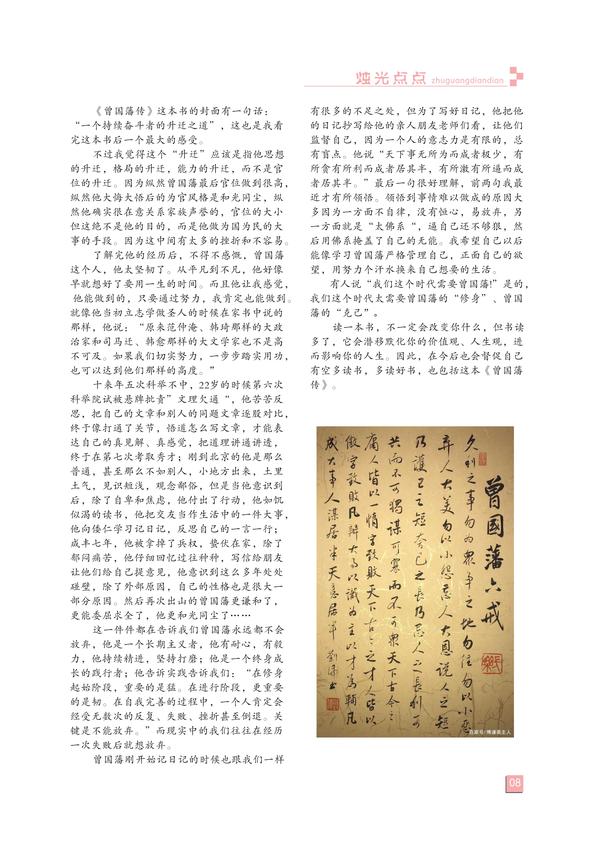 烛光点点 zhuguangdiandian
《曾国藩传》这本书的封面有一句话：
“一个持续奋斗者的升迁之道”，这也是我看
完这本书后一个最大的感受。
不过我觉得这个“升迁”应该是指他思想
的升迁，格局的升迁，能力的升迁，而不是官
位的升迁。因为纵然曾国藩最后官位做到很高，
纵然他大悔大悟后的为官风格是和光同尘，纵
然他确实很在意关系家族声誉的，官位的大小
但这绝不是他的目的，而是他做为国为民的大
事的手段。因为这中间有太多的挫折和不容易。
了解完他的经历后，不得不感慨，曾国藩
这个人，他太坚韧了。从平凡到不凡，他好像
早就想好了要用一生的时间。而且他让我感觉，
他能做到的，只要通过努力，我肯定也能做到。
就像他当初立志学做圣人的时候在家书中说的
那样，他说：“原来范仲淹、韩琦那样的大政
治家和司马迁、韩愈那样的大文学家也不是高
不可及。如果我们切实努力，一步步踏实用功，
也可以达到他们那样的高度。”
十来年五次科举不中，22岁的时候第六次
科举院试被悬牌批责”文理欠通“，他苦苦反
思，把自己的文章和别人的同题文章逐股对比，
终于像打通了关节，悟道怎么写文章，才能表
达自己的真见解、真感觉，把道理讲通讲透，
终于在第七次考取秀才；刚到北京的他是那么
普通，甚至那么不如别人，小地方出来，土里
土气，见识短浅，观念鄙俗，但是当他意识到
后，除了自卑和焦虑，他付出了行动，他如饥
似渴的读书，他把交友当作生活中的一件大事，
他向倭仁学习记日记，反思自己的一言一行；
咸丰七年，他被拿掉了兵权，蛰伏在家，除了
郁闷痛苦，他仔细回忆过往种种，写信给朋友
让他们给自己提意见，他意识到这么多年处处
碰壁，除了外部原因，自己的性格也是很大一
部分原因。然后再次出山的曾国藩更谦和了，
更能委屈求全了，他更和光同尘了……
这一件件都在告诉我们曾国藩永远都不会
放弃，他是一个长期主义者，他有耐心，有毅
力，他持续精进，坚持打磨；他是一个终身成
长的践行者；他告诉实践告诉我们：“在修身
起始阶段，重要的是猛。在进行阶段，更重要
的是韧。在自我完善的过程中，一个人肯定会
经受无数次的反复、失败、挫折甚至倒退。关
键是不能放弃。”而现实中的我们往往在经历
一次失败后就想放弃。
曾国藩刚开始记日记的时候也跟我们一样
有很多的不足之处，但为了写好日记，他把他
的日记抄写给他的亲人朋友老师们看，让他们
监督自己，因为一个人的意志力是有限的，总
有盲点。他说“天下事无所为而成者极少，有
所贪有所利而成者居其半，有所激有所逼而成
者居其半。”最后一句很好理解，前两句我最
近才有所领悟。领悟到事情难以做成的原因大
多因为一方面不自律，没有恒心，易放弃，另
一方面就是“太佛系“，逼自己还不够狠，然
后用佛系掩盖了自己的无能。我希望自己以后
能像学习曾国藩严格管理自己，正面自己的欲
望，用努力个汗水换来自己想要的生活。
有人说“我们这个时代需要曾国藩!”是的，
我们这个时代太需要曾国藩的“修身”、曾国
藩的“克己”。
读一本书，不一定会改变你什么，但书读
多了，它会潜移默化你的价值观、人生观，进
而影响你的人生。因此，在今后也会督促自己
有空多读书，多读好书，也包括这本《曾国藩
传》。
曾国藩六戒
久利之事勿为众争之地勿往勿以小恶
弃人大美勿以小怨忘人大恩说人之短
乃护己之短夸己之长乃忌人之长利可
共而不可独谋可寡而不可众天下古今之
庸人皆以一惰字致败天下古今之才人皆以
傲字致败凡办大事以识为主以才为辅凡
成大事人谋居半天意居半
08